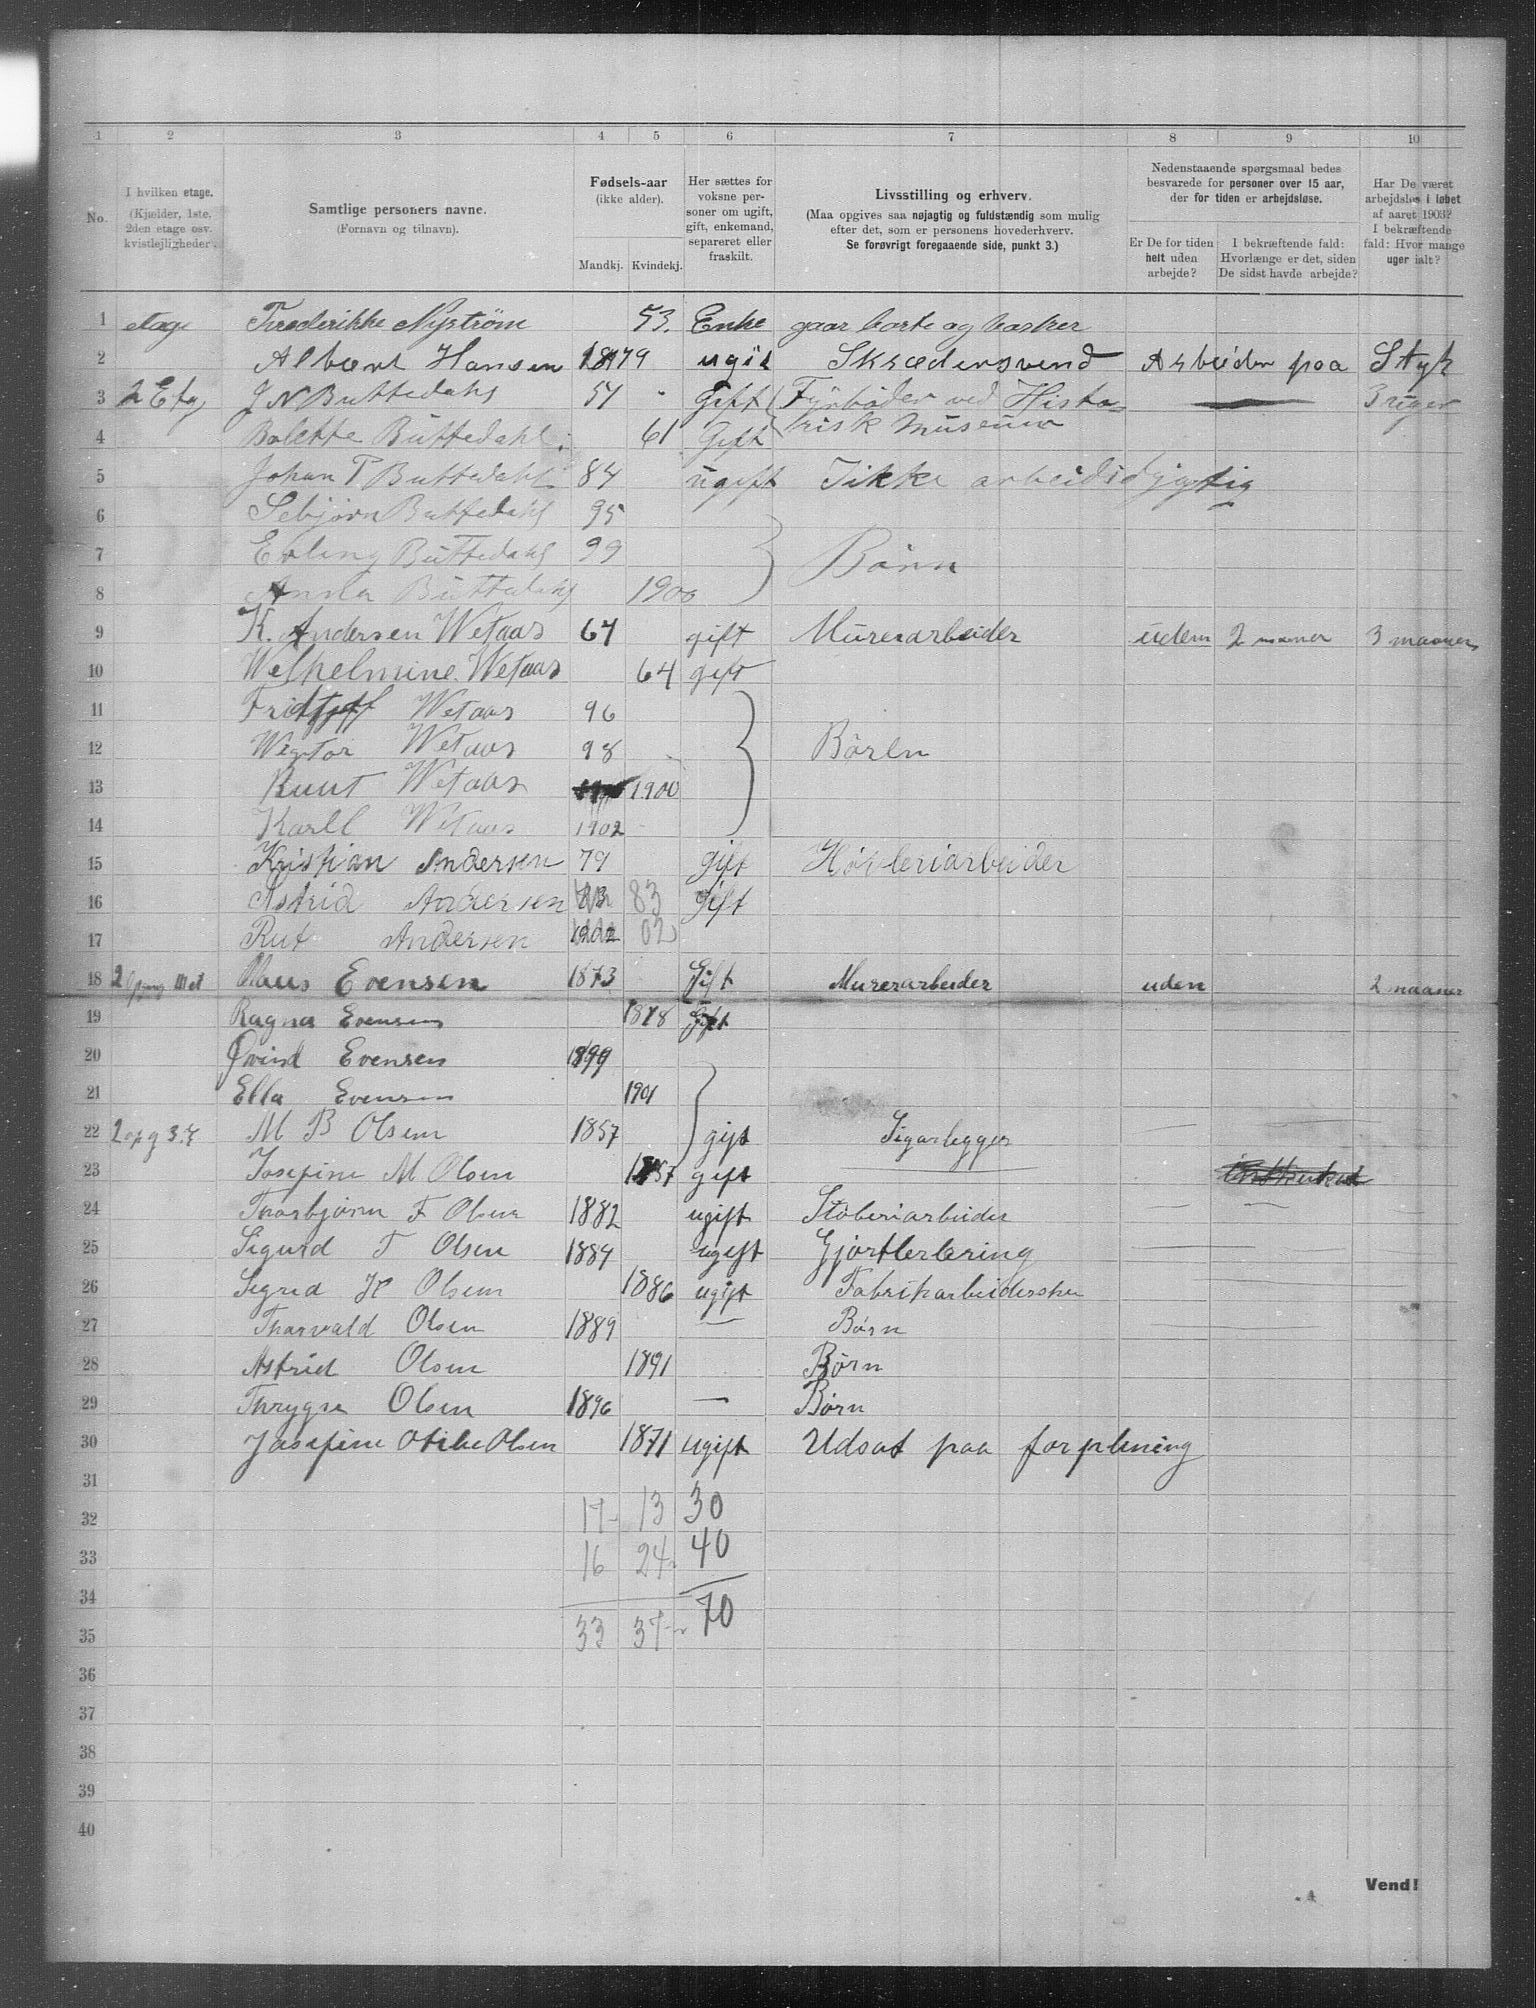 1 2 3 4 5 6 7 8 9 10
No.
I hvilken etage.
(Kjælder, 1ste,
2den etage osv.
kvistlejligheder.
Samtlige personers navne.
(Fornavn og tilnavn).
Fødsels-aar
(ikke alder).
Mandkj. Kvindekj.
Her sættes for
voksne per-
soner om ugift,
gift, enkemand,
separeret eller
fraskilt.
Livsstilling og erhverv.
(Maa opgives saa nøjagtig og fuldstændig som mulig
efter det, som er personens hovederhverv.
Se forøvrigt foregaaende side, punkt 3.)
Nedenstaaende spørgsmaal bedes
besvarede for personer over 15 aar,
der for tiden er arbejdsløse.
Er De for tiden
helt uden
arbejde?
I bekræftende fald:
Hvorlænge er det, siden
De sidst havde arbejde?
Har De været
arbejdsløs i løbet
af aaret 1903?
I bekræftende
fald: Hvor mange
uger ialt?
1 etage Frederikke Nyström 53. Enke gaar borte og vasker
2 Albert Hansen 1879 ugift Skrædersvend Arbeider paa Styk
3 2 Etg J N Buttedahl 57 Gift Fyrbøder ved Histo- 3 uger
4 Bolette Buttedahl 61 Gift risk Museum
5 Johan P Buttedahl 84 ugift Ikke arbeidsdygtig
6 Sebjørn Buttedahl 95
7 Erling Buttedahl 99 Børn
8 Anna Buttedahl 1900
9 K. Andersen Wetaas 64 gift Murerarbeider uden 2 maaner 3 maaner
10 Welhelmine Wetaas 64 gift
11 Fridtjoff Wetaas 96
12 Wegtor Wetaas 98 Børen
13 Ruut Wetaas 1900
14 Karll Wetaas 1902
15 Kristian Andersen 79 gift Høvleriarbeider
16 Astrid Andersen 83 gift
17 Rut Andersen 1902 02
18 2 Opgang III et Olaus Evensen 1873 Gift Murerarbeider uden 2 maaner
19 Ragna Evensen 1878 Gift
20 Øvind Evensen 1899
21 Ella Evensen 1901
22 2 opg 3. M B Olsen 1857 gift Sigarlegger
23 Josefine M Olsen 1857 gift
24 Thorbjørn F Olsen 1882 ugift Støberiarbeider
25 Sigurd T Olsen 1884 ugift Gjørtlerlæring
26 Sigrid H Olsen 1886 ugift Fabrikarbeiderske
27 Thorvald Olsen 1889 — Børn
28 Astrid Olsen 1891 Børn
29 Thrygve Olsen 1896 — Børn
30 Josefine Otilie Olsen 1871 ugift Udsat paa forpleining
31
32 17 13 30
33 16 24 40
34
35 33 37 70
36
37
38
39
40
Vend!